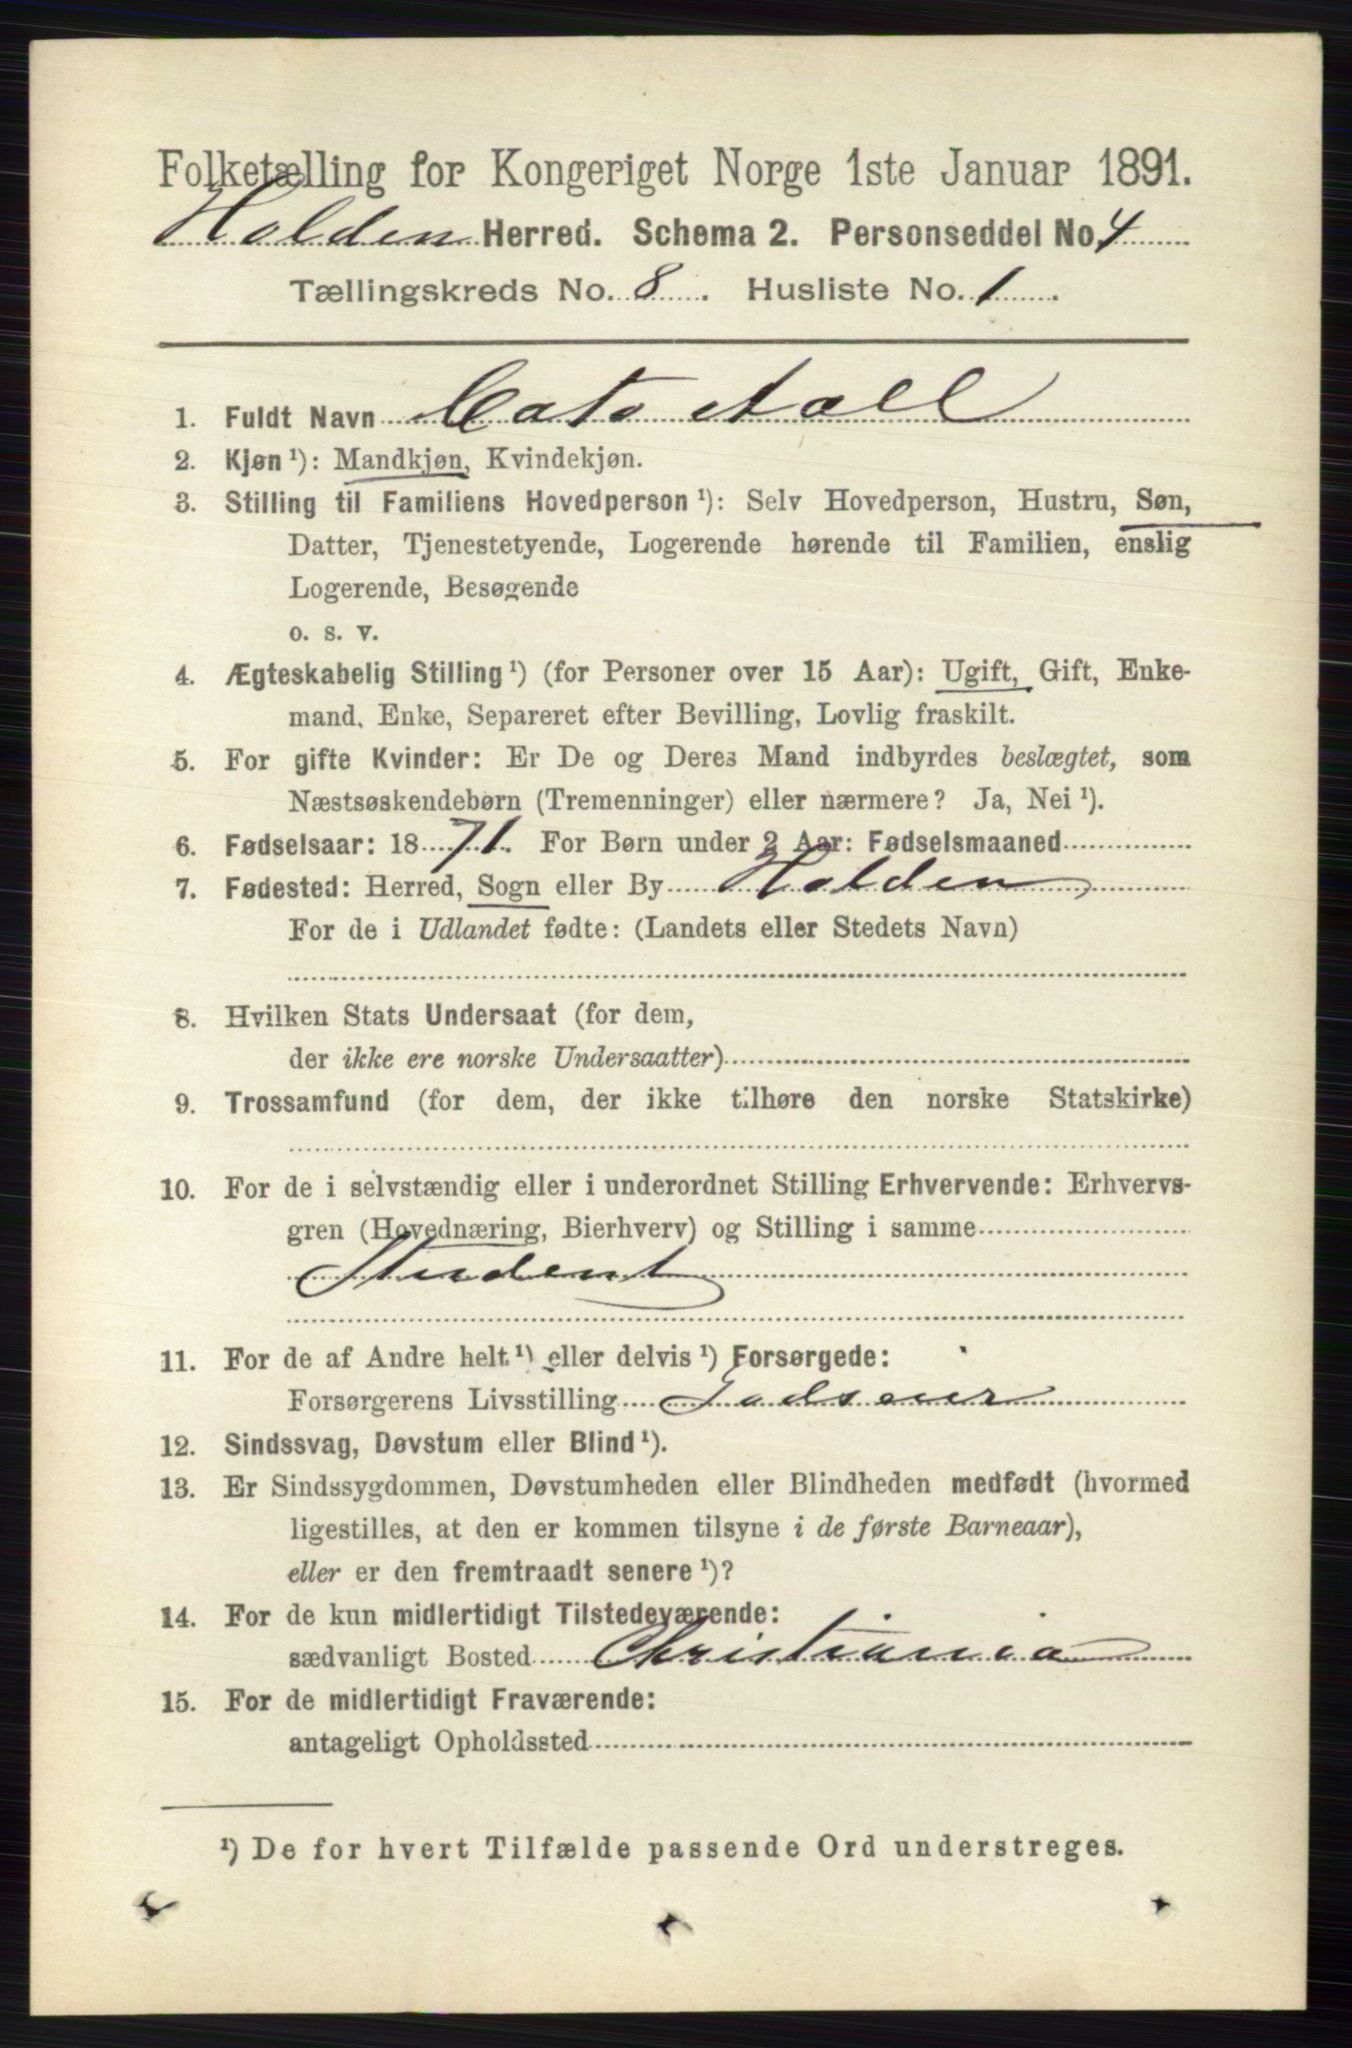 Folketælling for Kongeriget Norge 1ste Januar 1891.
Holden Herred. Schema 2. Personseddel No. 4
Tællingskreds No. 8. Husliste No. 1.
1. Fuldt Navn Cato Aall
2. Kjøn ¹): Mandkjøn, Kvindekjøn.
3. Stilling til Familiens Hovedperson ¹): Selv Hovedperson, Hustru, Søn,
Datter, Tjenestetyende, Logerende hørende til Familien, enslig
Logerende, Besøgende
o. s. v.
4. Ægteskabelig Stilling ¹) (for Personer over 15 Aar): Ugift, Gift, Enke-
mand, Enke, Separeret efter Bevilling, Lovlig fraskilt.
5. For gifte Kvinder: Er De og Deres Mand indbyrdes beslægtet, som
Næstsøskendebørn (Tremenninger) eller nærmere? Ja, Nei ¹).
6. Fødselsaar: 1871. For Børn under 2 Aar: Fødselsmaaned
7. Fødested: Herred, Sogn eller By Holden
For de i Udlandet fødte: (Landets eller Stedets Navn)
8. Hvilken Stats Undersaat (for dem,
der ikke ere norske Undersaatter)
9. Trossamfund (for dem, der ikke tilhøre den norske Statskirke)
10. For de i selvstændig eller i underordnet Stilling Erhvervende: Erhvervs-
gren (Hovednæring, Bierhverv) og Stilling i samme
Student
11. For de af Andre helt ¹) eller delvis ¹) Forsørgede:
Forsørgerens Livsstilling Godseier
12. Sindssvag, Døvstum eller Blind ¹).
13. Er Sindssygdommen, Døvstumheden eller Blindheden medfødt (hvormed
ligestilles, at den er kommen tilsyne i de første Barneaar),
eller er den fremtraadt senere ¹)?
14. For de kun midlertidigt Tilstedeværende:
sædvanligt Bosted Christiania
15. For de midlertidigt Fraværende:
antageligt Opholdssted
¹) De for hvert Tilfælde passende Ord understreges.